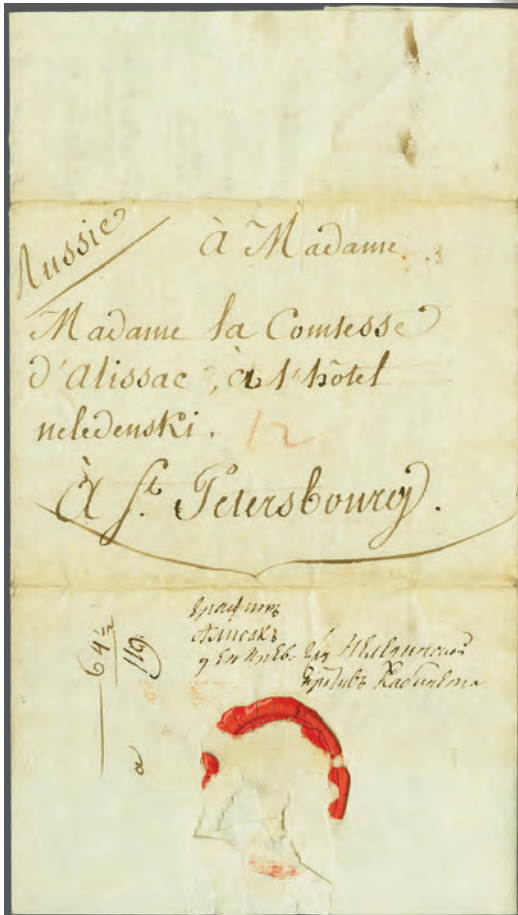 Russie
à Madame
Madame la Comtesse
d'alissac, à l'hôtel
neledenski.
12
à St. Petersbourg.
64½
119.
a
Графинѣ
Алисакъ